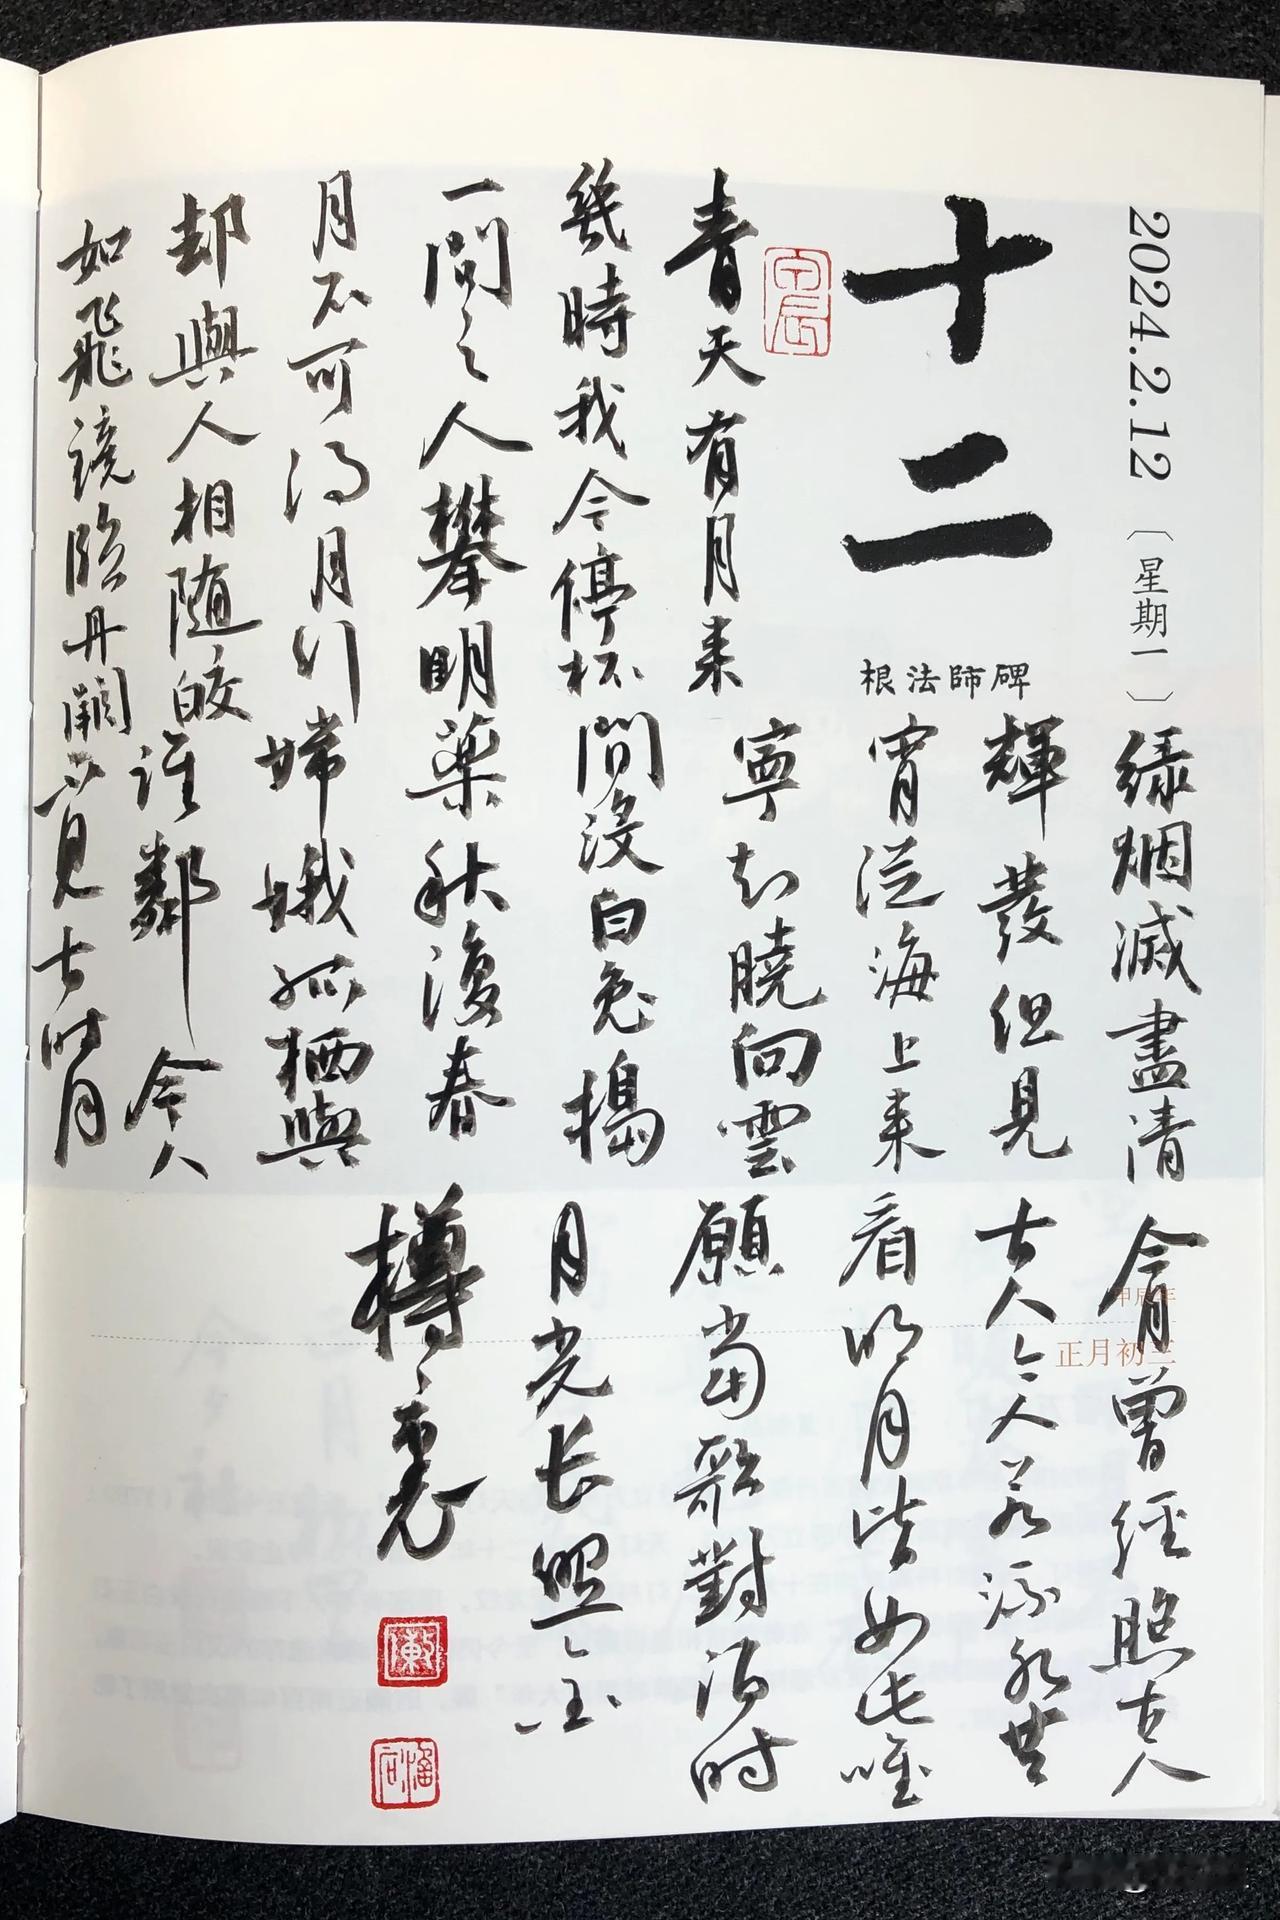 2024.2.12〔星期一〕
十二
根法師碑
甲辰
青天有月来
幾時我今停杯
一問之人攀明
月不可得月行
却與人相随皎
如飛鏡臨丹闕
緑烟滅盡清
輝發但見
宵從海上来
寧知曉向雲
間没白兔搗
藥秋復春
嫦娥孤栖與
誰鄰今人
不見古時月
今月曾經照古人
古人今人若流水共
看明月皆如此唯
願當歌對酒時
月光长照金
樽裏
甲辰年
正月初三